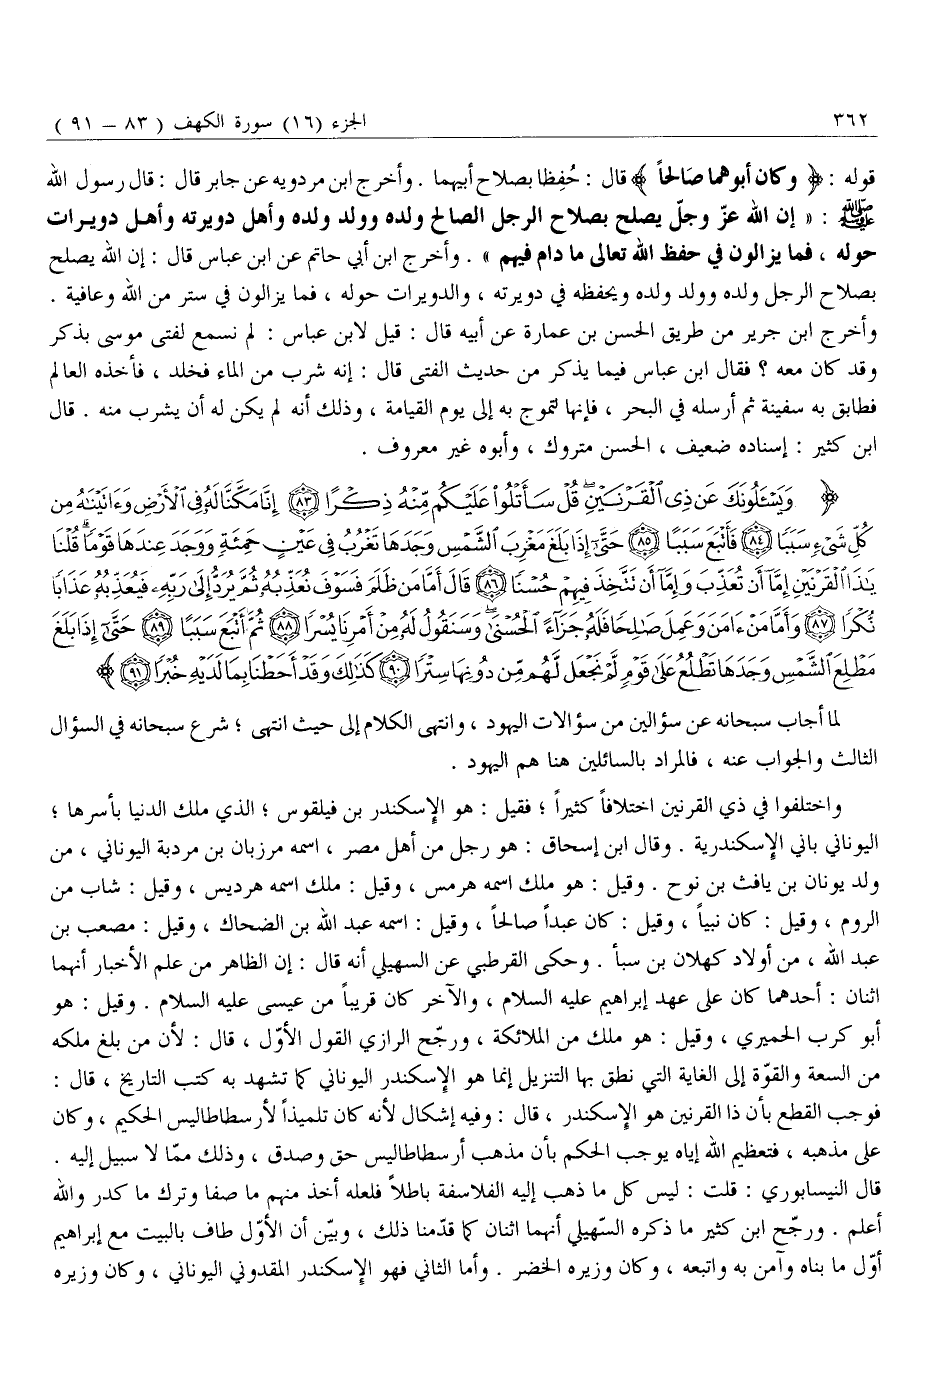 ٣٦٢ الجزء (١٦) سورة الكهف ( ٨٣ – ٩١ )
قوله : ﴿ وكان أبوهما صالحاً ﴾ قال : حُفِظا بصلاح أبيهما . وأخرج ابن مردويه عن جابر قال : قال رسول الله
ﷺ : « إن الله عزّ وجلّ يصلح بصلاح الرجل الصالح ولده وولد ولده وأهل دويرته وأهـل دويـرات
حوله ، فما يزالون في حفظ الله تعالى ما دام فيهم » . وأخرج ابن أبي حاتم عن ابن عباس قال : إن الله يصلح
بصلاح الرجل ولده وولد ولده ويحفظه في دويرته ، والدويرات حوله ، فما يزالون في ستر من الله وعافية .
وأخرج ابن جرير من طريق الحسن بن عمارة عن أبيه قال : قيل لابن عباس : لم نسمع لفتى موسى بذكر
وقد كان معه ؟ فقال ابن عباس فيما يذكر من حديث الفتى قال : إنه شرب من الماء فخلد ، فأخذه العالم
فطابق به سفينة ثم أرسله في البحر ، فإنها لتموج به إلى يوم القيامة ، وذلك أنه لم يكن له أن يشرب منه . قال
ابن كثير : إسناده ضعيف ، الحسن متروك ، وأبوه غير معروف .
﴿ وَيَسْـَٔلُونَكَ عَن ذِى ٱلْقَرْنَيْنِ ۖ قُلْ سَأَتْلُوا۟ عَلَيْكُم مِّنْهُ ذِكْرًا ٨٣ إِنَّا مَكَّنَّا لَهُۥ فِى ٱلْأَرْضِ وَءَاتَيْنَـٰهُ مِن
كُلِّ شَىْءٍ سَبَبًا ٨٤ فَأَتْبَعَ سَبَبًا ٨٥ حَتَّىٰٓ إِذَا بَلَغَ مَغْرِبَ ٱلشَّمْسِ وَجَدَهَا تَغْرُبُ فِى عَيْنٍ حَمِئَةٍ وَوَجَدَ عِندَهَا قَوْمًا ۗ قُلْنَا
يَـٰذَا ٱلْقَرْنَيْنِ إِمَّآ أَن تُعَذِّبَ وَإِمَّآ أَن تَتَّخِذَ فِيهِمْ حُسْنًا ٨٦ قَالَ أَمَّا مَن ظَلَمَ فَسَوْفَ نُعَذِّبُهُۥ ثُمَّ يُرَدُّ إِلَىٰ رَبِّهِۦ فَيُعَذِّبُهُۥ عَذَابًا
نُّكْرًا ٨٧ وَأَمَّا مَنْ ءَامَنَ وَعَمِلَ صَـٰلِحًا فَلَهُۥ جَزَآءً ٱلْحُسْنَىٰ ۖ وَسَنَقُولُ لَهُۥ مِنْ أَمْرِنَا يُسْرًا ٨٨ ثُمَّ أَتْبَعَ سَبَبًا ٨٩ حَتَّىٰٓ إِذَا بَلَغَ
مَطْلِعَ ٱلشَّمْسِ وَجَدَهَا تَطْلُعُ عَلَىٰ قَوْمٍ لَّمْ نَجْعَل لَّهُم مِّن دُونِهَا سِتْرًا ٩٠ كَذَٰلِكَ وَقَدْ أَحَطْنَا بِمَا لَدَيْهِ خُبْرًا ٩١ ﴾
لما أجاب سبحانه عن سؤالين من سؤالات اليهود ، وانتهى الكلام إلى حيث انتهى ؛ شرع سبحانه في السؤال
الثالث والجواب عنه ، فالمراد بالسائلين هنا هم اليهود .
واختلفوا في ذي القرنين اختلافاً كثيراً ؛ فقيل : هو الإسكندر بن فيلقوس ؛ الذي ملك الدنيا بأسرها ؛
اليوناني باني الإسكندرية . وقال ابن إسحاق : هو رجل من أهل مصر ، اسمه مرزبان بن مردبة اليوناني ، من
ولد يونان بن يافث بن نوح . وقيل : هو ملك اسمه هرمس ، وقيل : ملك اسمه هرديس ، وقيل : شاب من
الروم ، وقيل : كان نبياً ، وقيل : كان عبداً صالحاً ، وقيل : اسمه عبد الله بن الضحاك ، وقيل : مصعب بن
عبد الله ، من أولاد كهلان بن سبأ . وحكى القرطبي عن السهيلي أنه قال : إن الظاهر من علم الأخبار أنهما
اثنان : أحدهما كان على عهد إبراهيم عليه السلام ، والآخر كان قريباً من عيسى عليه السلام . وقيل : هو
أبو كرب الحميري ، وقيل : هو ملك من الملائكة ، ورجّح الرازي القول الأوّل ، قال : لأن من بلغ ملكه
من السعة والقوّة إلى الغاية التي نطق بها التنزيل إنما هو الإسكندر اليوناني كما تشهد به كتب التاريخ ، قال :
فوجب القطع بأن ذا القرنين هو الإسكندر ، قال : وفيه إشكال لأنه كان تلميذاً لأرسطاطاليس الحكيم ، وكان
على مذهبه ، فتعظيم الله إياه يوجب الحكم بأن مذهب أرسطاطاليس حق وصدق ، وذلك ممّا لا سبيل إليه .
قال النيسابوري : قلت : ليس كل ما ذهب إليه الفلاسفة باطلاً فلعله أخذ منهم ما صفا وترك ما كدر والله
أعلم . ورجّح ابن كثير ما ذكره السّهيلي أنهما اثنان كما قدّمنا ذلك ، وبيّن أن الأوّل طاف بالبيت مع إبراهيم
أوّل ما بناه وآمن به واتبعه ، وكان وزيره الخضر . وأما الثاني فهو الإسكندر المقدوني اليوناني ، وكان وزيره